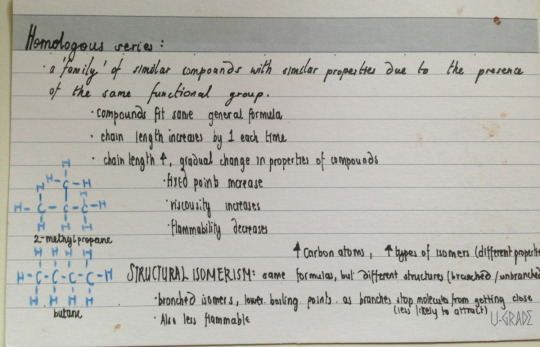 Homologous series:
· a 'family' of similar compounds with similar properties due to the presence
of the same functional group.
· compounds fit same general formula
· chain length increases by 1 each time
· chain length ↑, gradual change in properties of compounds
· fixed points increase
· viscosity increases
· flammability decreases
H
H C H
H H
C C C
H H H
2-methylpropane
↑ Carbon atoms, ↑ types of isomers (different propertie
H H H H
H-C-C-C-C-H
H H H H
butane
STRUCTURAL ISOMERISM: same formulas, but different structures (branched/unbranched
· branched isomers, lower boiling points as branches stop molecules from getting close
(less likely to attract)
· Also less flammable
U-GRADE